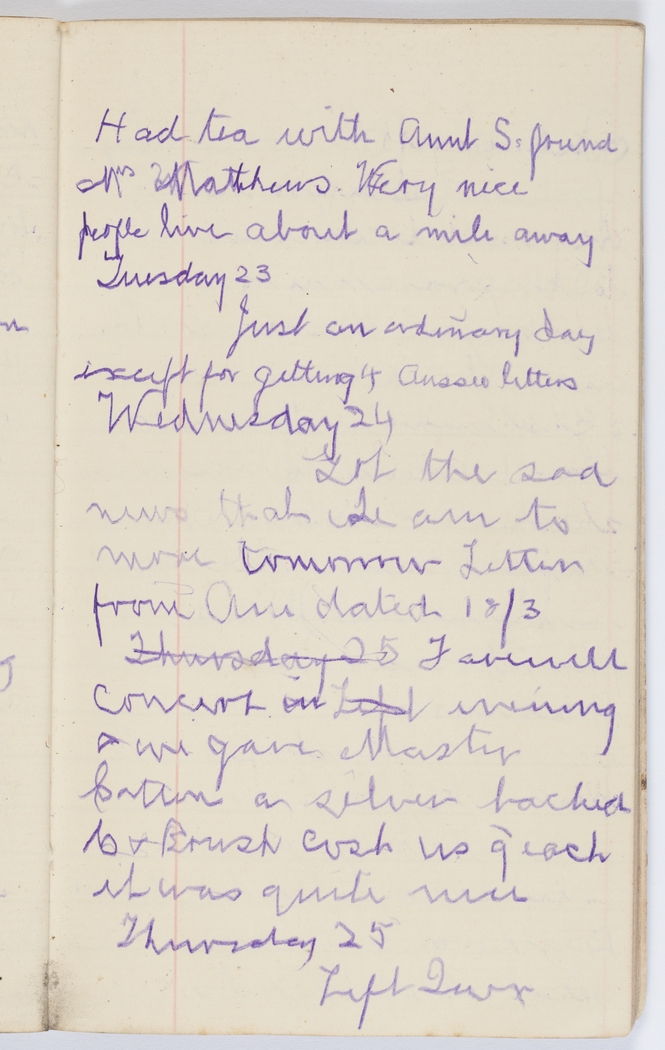 Had tea with Aunt S. friend
Mrs Matthews. Very nice
people live about a mile away
Tuesday 23
Just an ordinary day
except for getting 4 Aussie letters
Wednesday 24
Got the sad
news that we are to
move tomorrow Letter
from Anu dated 18/3
Thursday 25 Farewell
Concert in Left evening
& we gave Master
a silver backed
C & Brush cost us each
it was quite nice
Thursday 25
Left